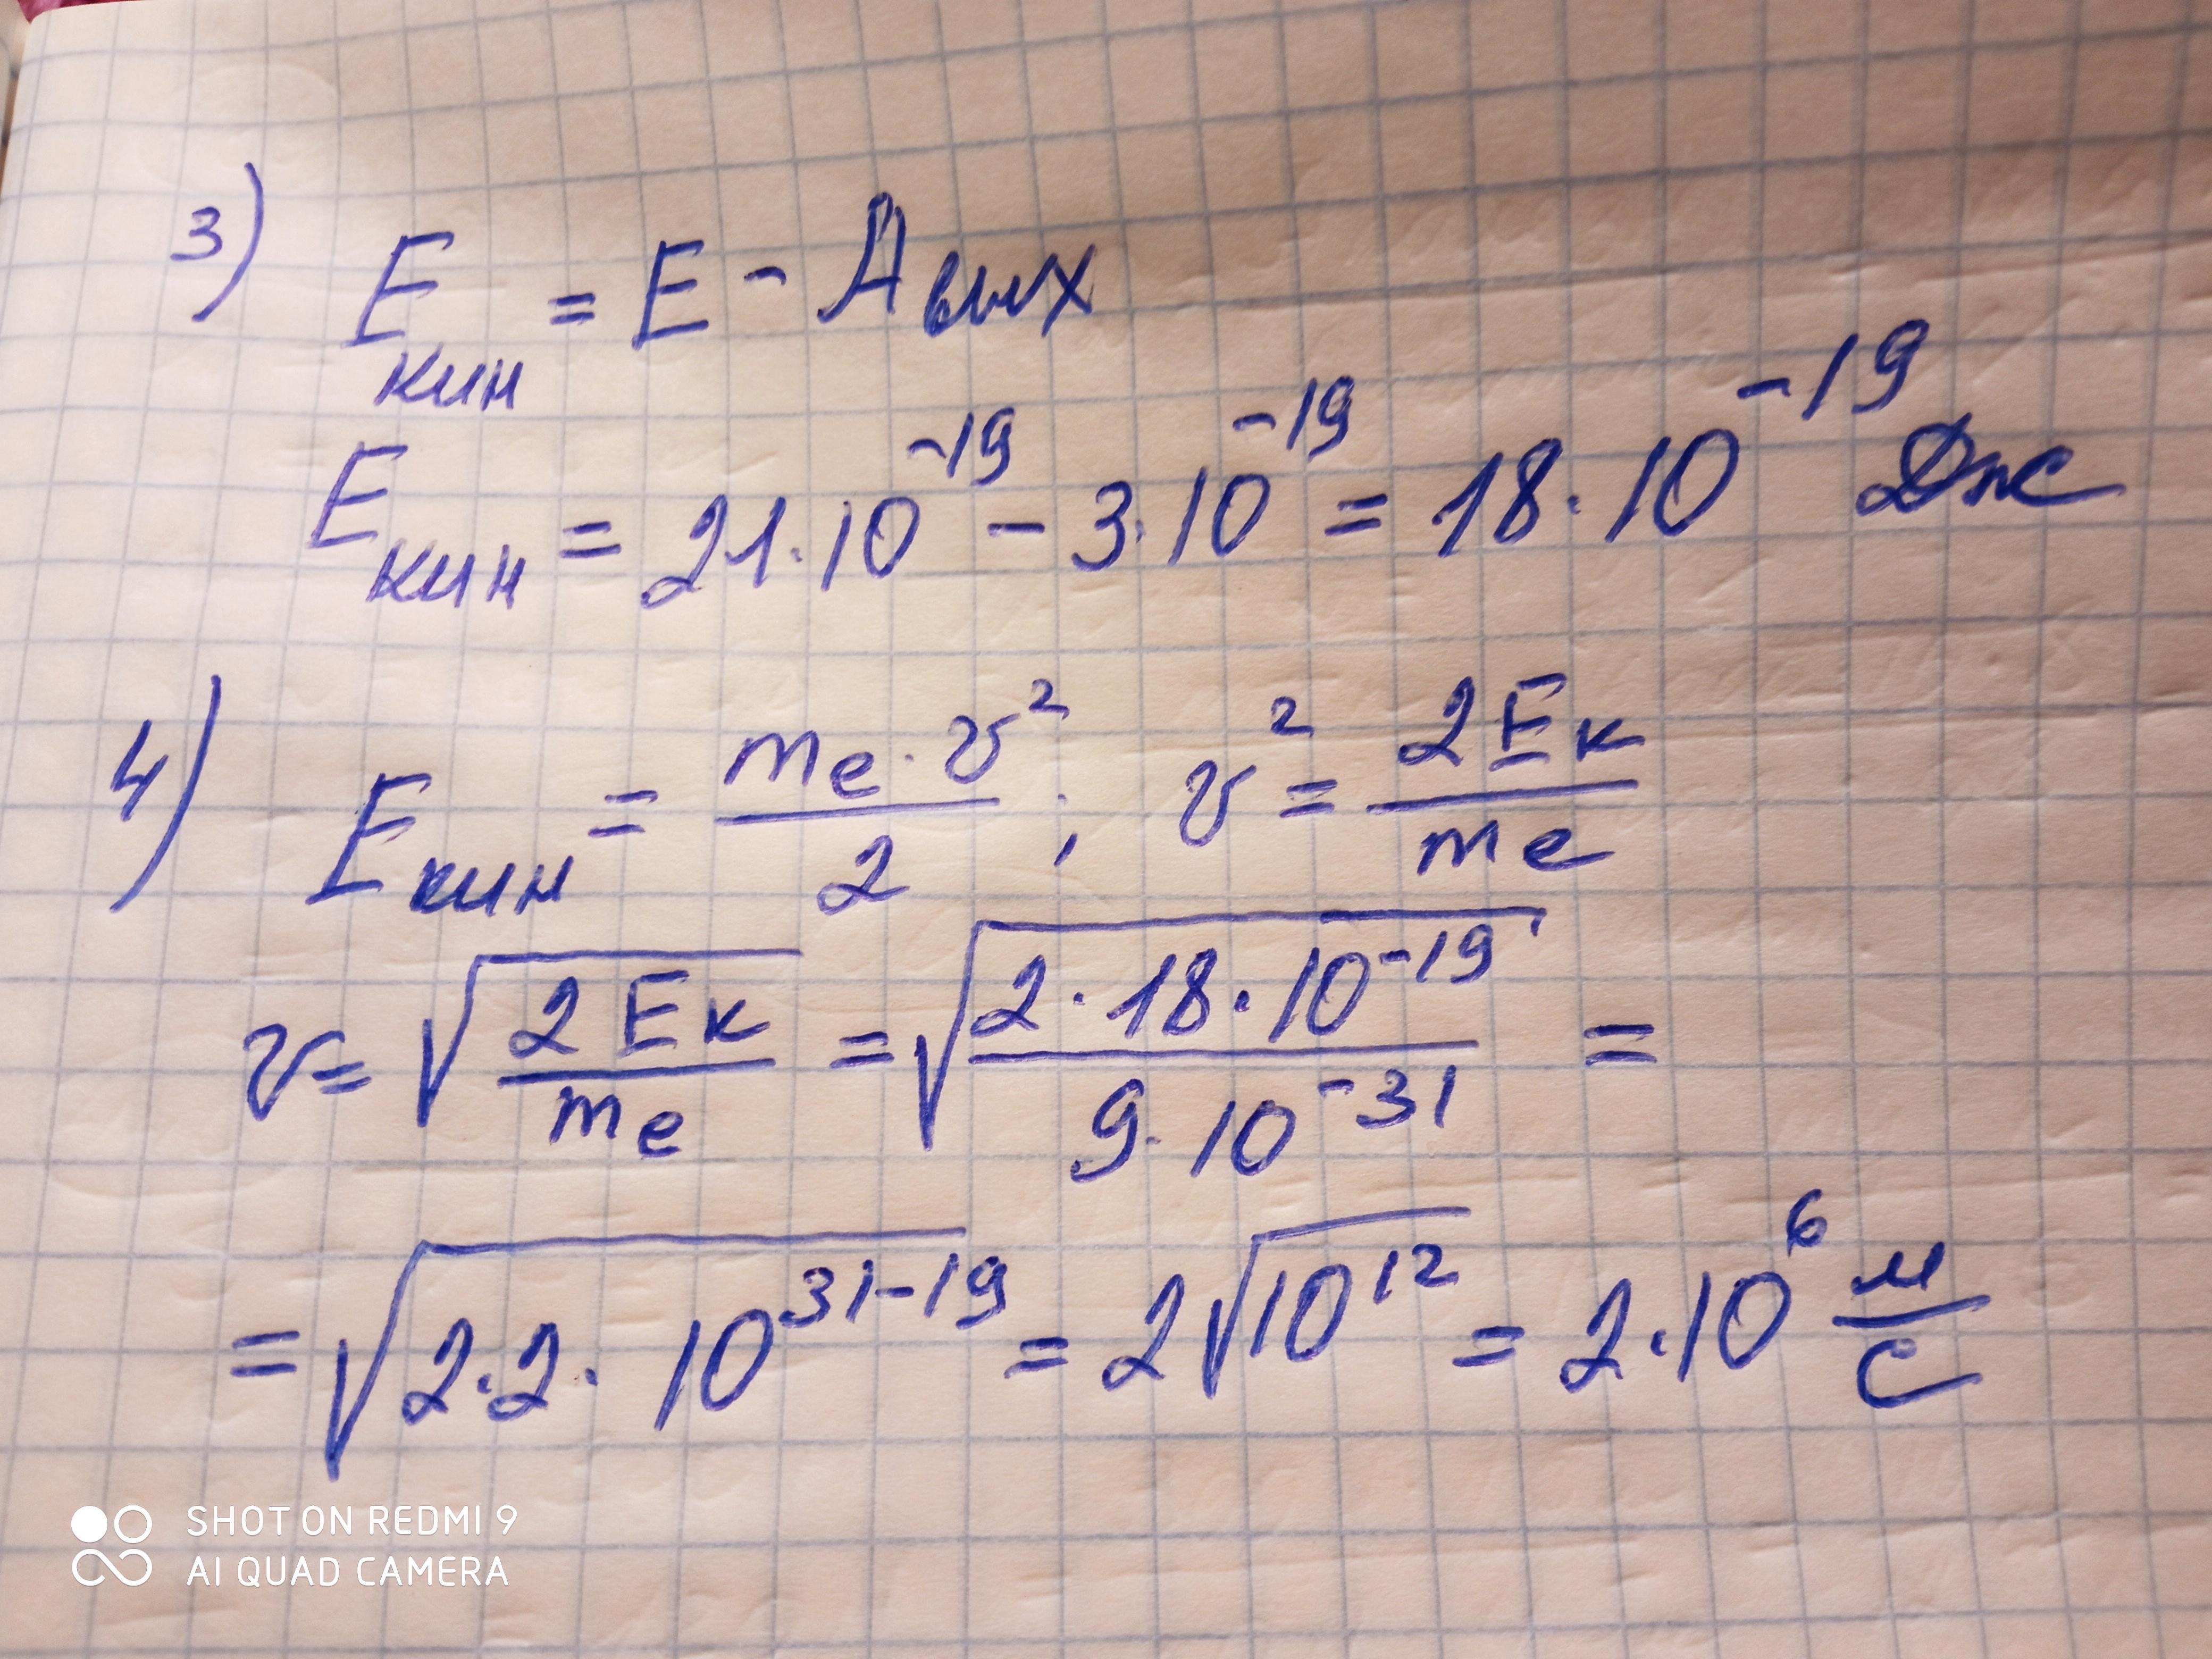 3) Eкин = E - Aвых
Eкин = 21·10⁻¹⁹ - 3·10⁻¹⁹ = 18·10⁻¹⁹ Дж
4) Eкин = mₑ·v²/2 ; v² = 2Eк/mₑ
v = √(2Eк/mₑ) = √(2·18·10⁻¹⁹/9·10⁻³¹) =
= √(2·2·10³¹⁻¹⁹) = 2√(10¹²) = 2·10⁶ м/с
SHOT ON REDMI 9
AI QUAD CAMERA